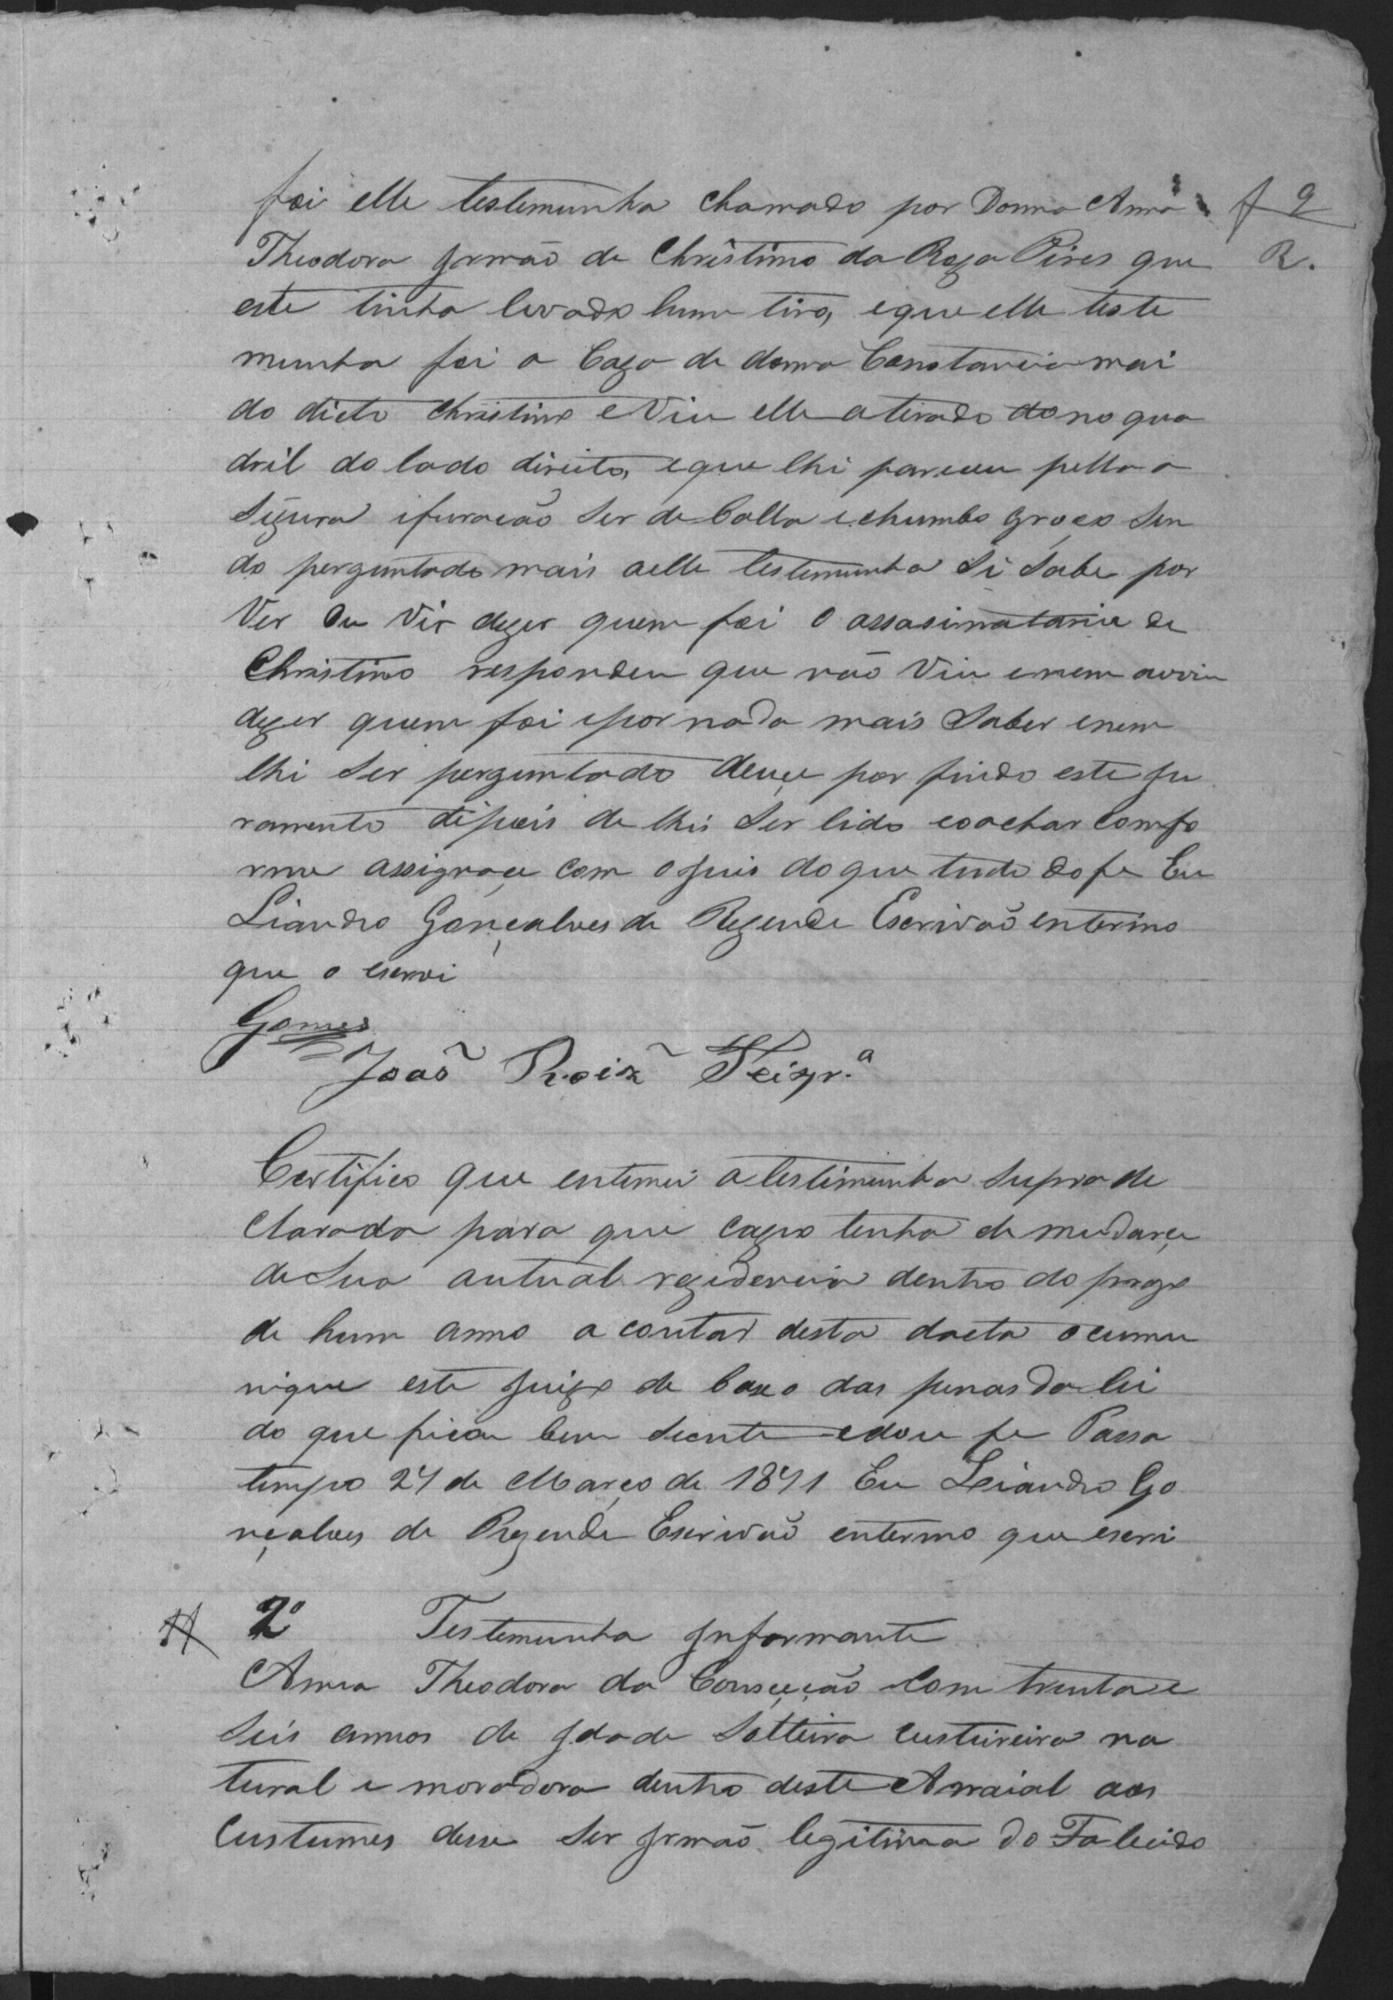 f 9
R.
foi elle testemunha chamado por Donna Anna
Theodora Jrmão de Christino da Roza Pires que
este tinha levado hum tiro, eque elle teste
munha foi a Caza de donna Constancia mai
do dicto Christino e Viu elle atirado do no qua
dril do lado direito, eque lhi pareceu pella a
Sigura ifuração Ser de balla e chumbo groço Sen
do perguntado mais aelle testemunha Si Sabe por
Ver Ou Vir dezer quem foi O assasinatario de
Christino respondeu que não Viu enem ouviu
dezer quem foi epor nada mais Saber enem
lhi Ser perguntado deuçe por findo este ju
ramento dipois de lhis Ser lido eoachar Comfo
rme assignace com o juis do que tudo dofe Eu
Liandro Gonçalves de Rezende Escrivão enterino
que o escrvi
Gomes
João Roiz Teixr.ª
Certifico que entemei a testimunha Supra de
clarada para que cazo tenha de mudarçe
de Sua autual rezidencia dentro do prazo
de hum anno a contar desta dacta ocumu
nique este Juizo de baxo das penas da lei
do que ficou bem Sciente edou fe Passa
tempo 24 de Março de 1891 Eu Leiandro Go
nçalves de Rezende Escrivão enterino que escrvi
2º Testemunha Jnformante
Anna Theodora da Conceição Com trinta e
Seis annos de Jdade Solteira Custureira na
tural e moradora dentro deste Arraial aos
Custumes desse Ser Jrmão legitima do Falecido